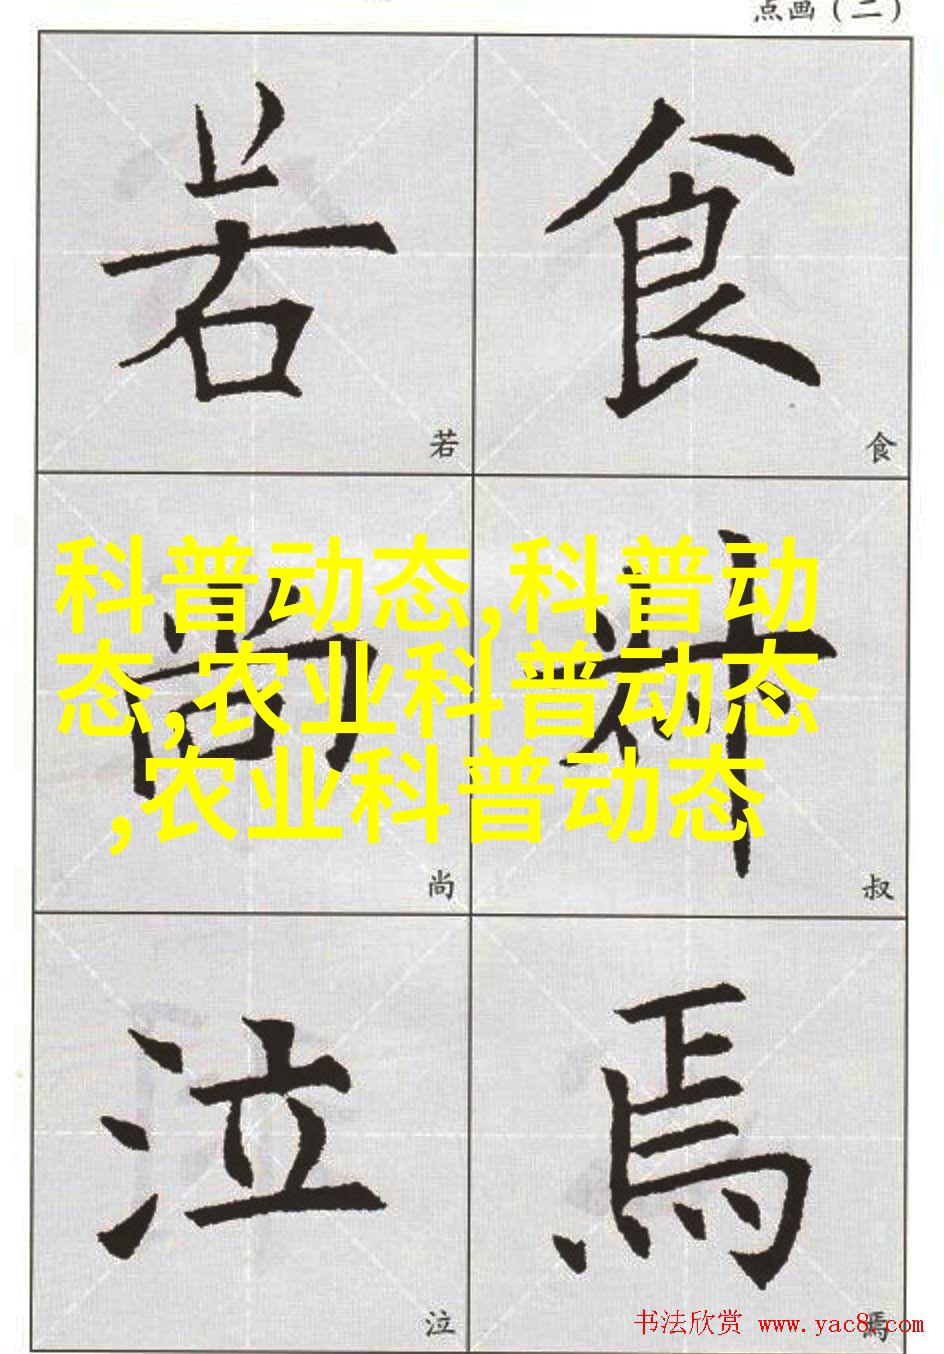 点画（二）
若 食
若 食
科普动态,科普动
态,农业科普动态
,农业科普动态
尚 叔
尚 叔
泣 焉
泣 焉
书法欣赏 www.yac8.com